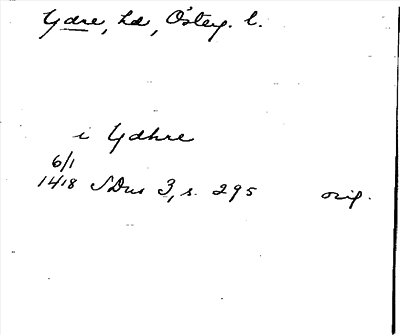 Ydre, hd, Österg. l.
i Ydhre
6/1
1418 SDns 3, s. 295 orig.